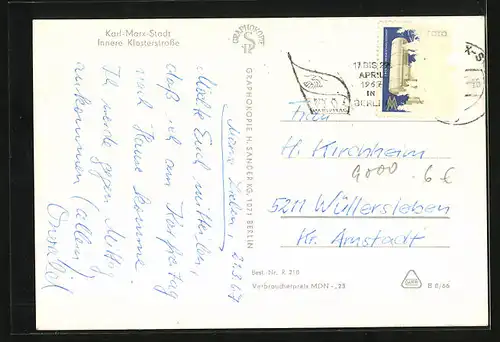 Karl-Marx-Stadt
Innere Klosterstraße
Meine Lieben, 21.3.67
Möchte Euch mitteilen,
daß ich am Karfreitag
nach Hause komme.
Ich werde gegen Mittag
ankommen (allein)
GRAPHOKOPIE H. SANDER KG, 1071 BERLIN
17. BIS 22.
APRIL
1967
IN
BERLIN
Frau
H. Kirchheim
9000 6 €
5211 Wüllersleben
Kr. Arnstadt
Best.-Nr. R 218
Verbraucherpreis MDN -,23
B 8/66